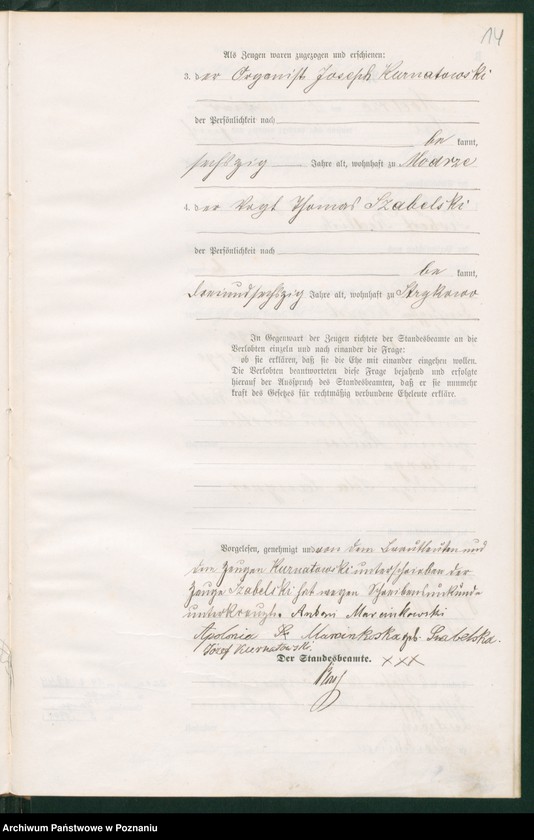 14
Als Zeugen waren zugezogen und erschienen:
3. der Organist Joseph Kurnatowski
der Persönlichkeit nach
be kannt,
sechszig Jahre alt, wohnhaft zu Modrze
4. der Vogt Thomas Szabelski
der Persönlichkeit nach
be kannt,
dreiundsechszig Jahre alt, wohnhaft zu Strykowo
In Gegenwart der Zeugen richtete der Standesbeamte an die
Verlobten einzeln und nach einander die Frage:
ob sie erklären, daß sie die Ehe mit einander eingehen wollen.
Die Verlobten beantworteten diese Frage bejahend und erfolgte
hierauf der Ausspruch des Standesbeamten, daß er sie nunmehr
kraft des Gesetzes für rechtmäßig verbundene Eheleute erkläre.
Vorgelesen, genehmigt und von dem Brautleuten und
dem Zeugen Kurnatowski unterschrieben der
Zeuge Szabelski hat wegen Schreibensunkunde
unterkreuzt. Antoni Marcinkowski
Apolonia Marcinkoska geb. Szabelska.
Józef Kurnatowski.
Der Standesbeamte. XXX
Archiwum Państwowe w Poznaniu